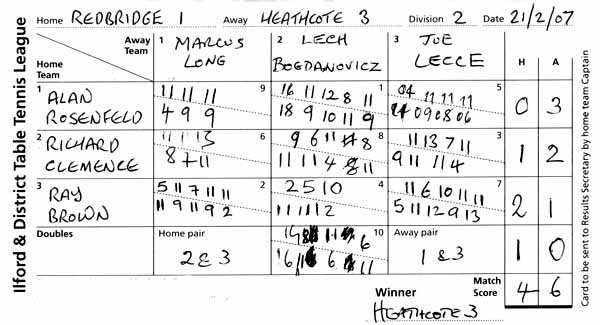 Home REDBRIDGE 1 Away HEATHCOTE 3 Division 2 Date 21/2/07
Ilford & District Table Tennis League
Away Team
Home Team
1 MARCUS LONG
2 LECH BOGDANOVICZ
3 JOE LECCE
H A
1 ALAN ROSENFELD
9
11 11 11
4 9 9
1
16 11 12 8 11
18 9 10 11 9
5
11 11 11
09 08 06
0 3
2 RICHARD CLEMENCE
6
11 11 13
8 7 11
8
9 6 11 8
11 11 4 11
3
11 13 7 11
9 11 11 4
1 2
3 RAY BROWN
2
5 11 7 11 11
11 9 11 9 2
4
2 5 10
11 11 12
7
11 6 10 11 11
5 11 12 9 13
2 1
Doubles
Home pair
2 & 3
10
11 6
16 6 11
Away pair
1 & 3
1 0
Winner
HEATHCOTE 3
Match Score
4 6
Card to be sent to Results Secretary by home team Captain